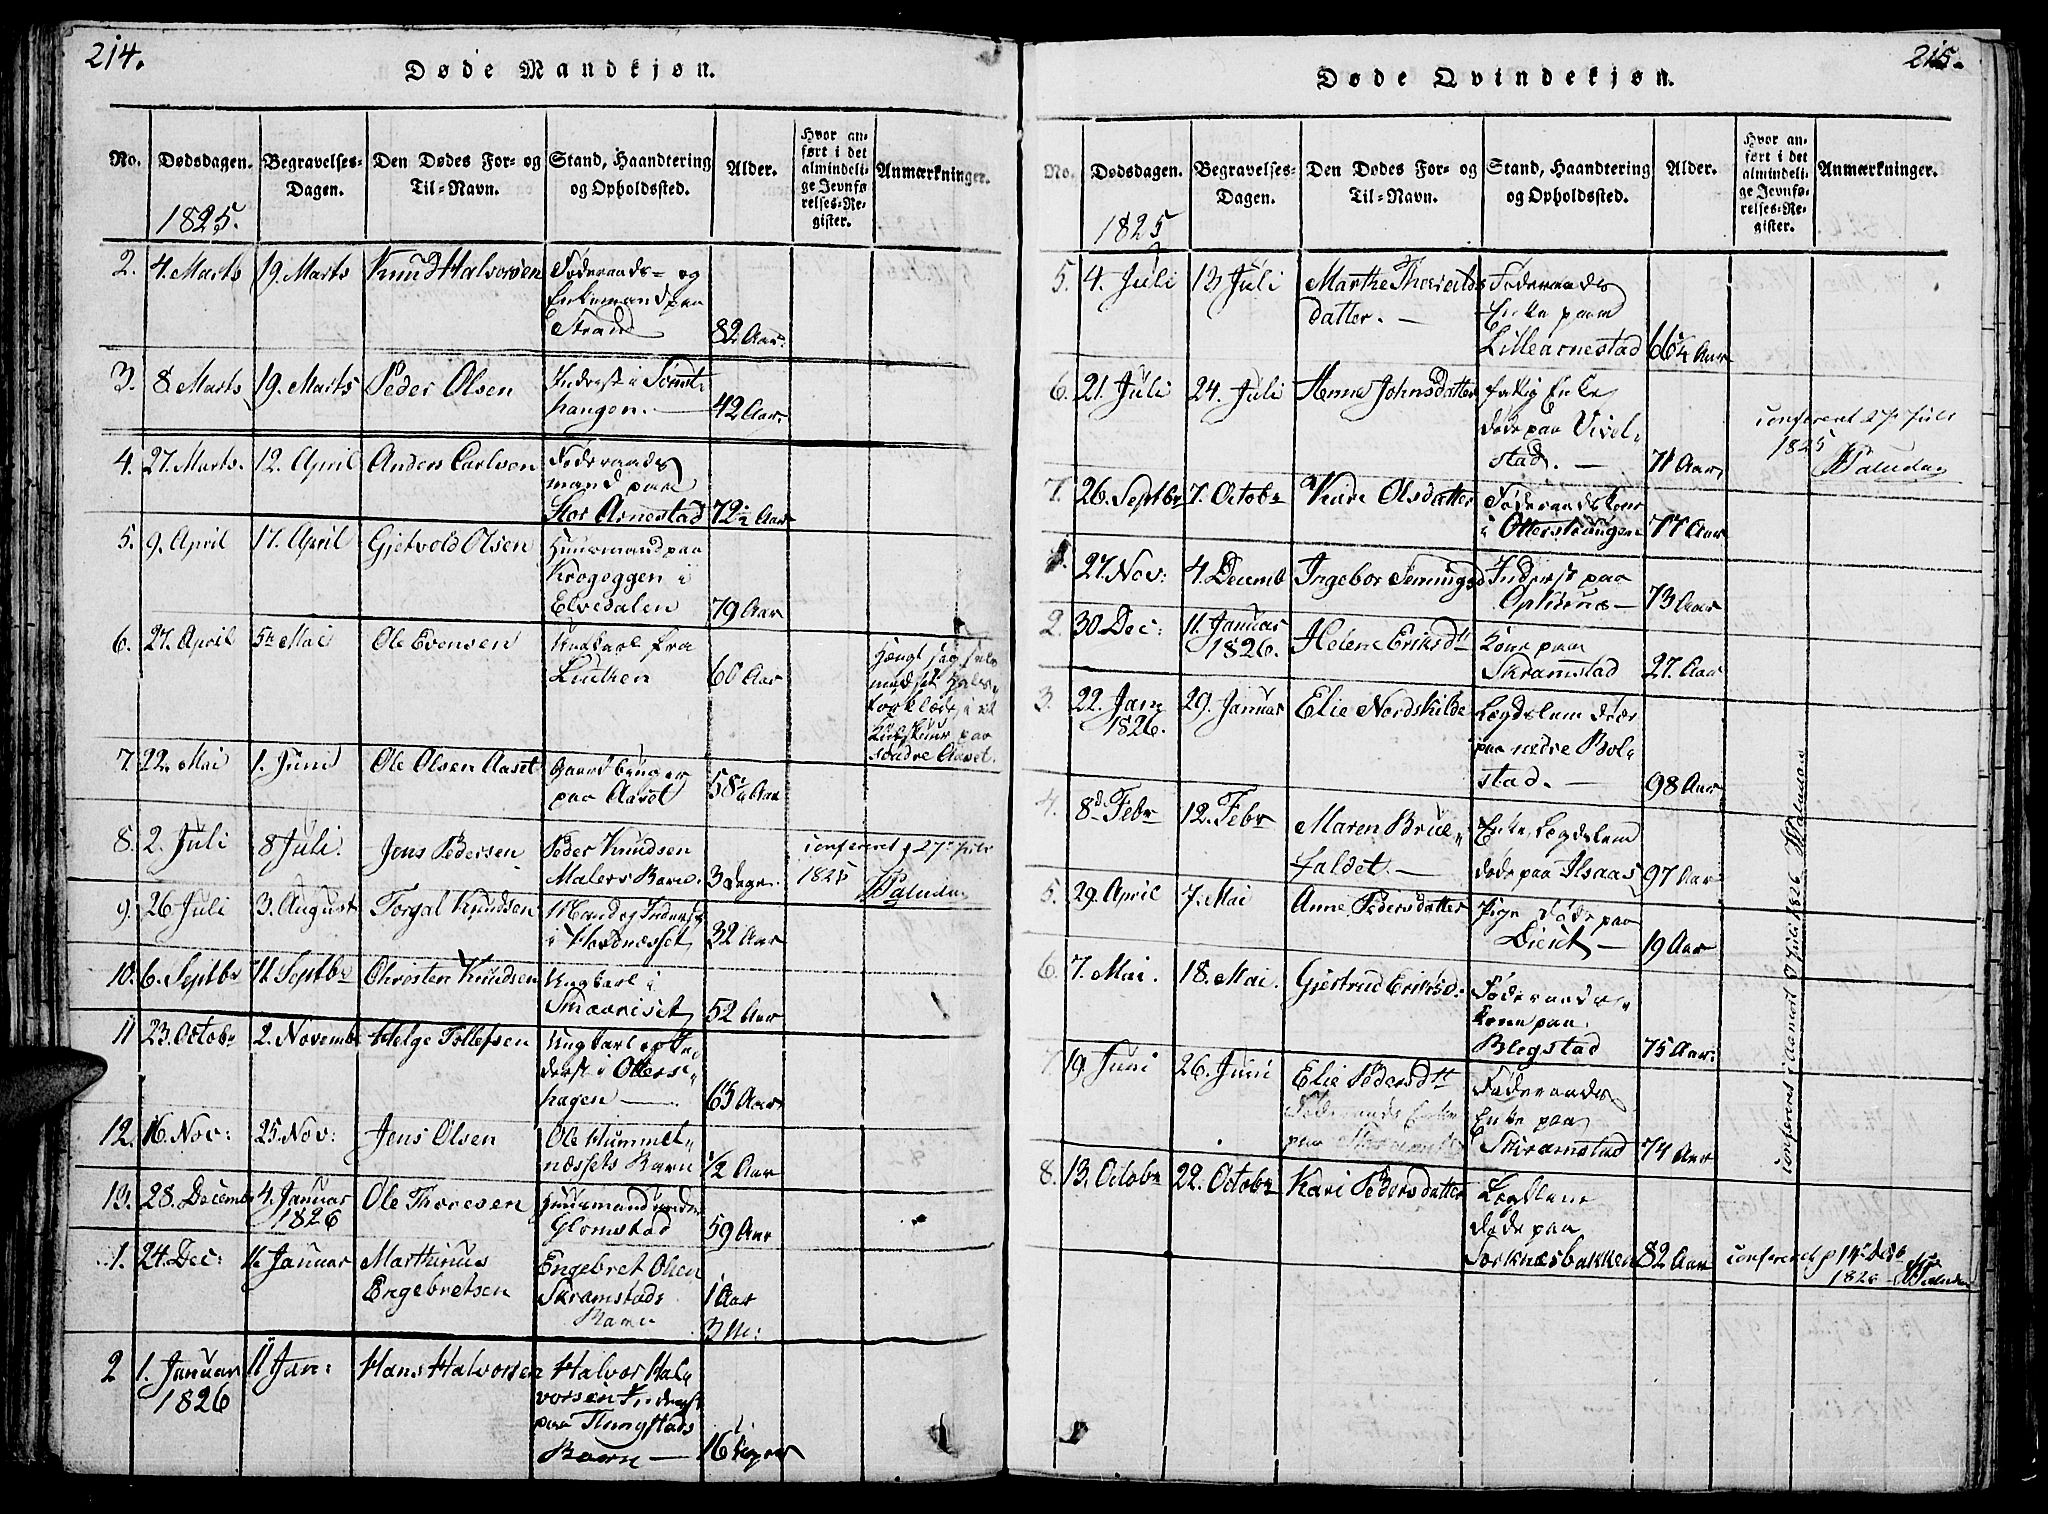 214.
Døde Mandkjøn.
No.
Dødsdagen.
Begravelses-
Dagen.
Den Dødes For- og
Til-Navn.
Stand, Haandtering
og Opholdssted.
Alder.
Hvor an-
ført i det
almindeli-
ge Jevnfø
relses-Re-
gister.
Anmærkninger.
1825.
2. 4. Marts 19. Marts Knud Halvorsen Føderaads- og
Enkemand paa
Strand 82 Aar.
3. 8 Marts 19. Marts Peder Olsen Inderst i
hangen. 42 Aar.
4. 27. Marts. 12. April Anders Carlsen Føderaads
mand paa
Stor Arnestad 72½ Aar
5. 9. April 17. April Gjetvold Olsen Huusmand paa
Krogeggen i
Elvedalen 79 Aar
6. 27. April 5te Mai Ole Evensen Ungkarl fra
60 Aar
Hængt sig selv
med sit Hals-
forklæde i et
paa
søndre Aaset.
7. 22. Mai 1. Juni Ole Olsen Aaset Gaardbruger
paa Aaset 58¼ Aar
8. 2. Juli 8 Juli. Jens Pedersen Peder Knudsen
Malers Barn. 3 Dage. confereret p 27de Juli
1825 Paludan
9. 26 Juli 3. August Torgal Knudsen Mand og Inderst
i Hordnæsset 32 Aar
10. 6. Septbr 11. Septbr Christen Knudsen Ungkarl i
52 Aar
11 23. Octobr 2. Novemb Helge Tollefsen Ungkarl og In-
derst i Otters-
hagen 65 Aar
12. 16. Nov: 25. Nov: Jens Olsen Ole Hummel-
næssets Barn ½ Aar
13. 28. Decemb 4. Januar
1826 Ole Thoresen Huusmand under
Glomstad 59 Aar
1. 24. Dec: Januar Marthinus
Engebretsen Engebret Olsen
Skramstads
Barn 1 Aar
3 M:
2 1. Januar
1826 11 Jan: Hans Halvorsen Halvor Hal-
vorsen Inderst
paa
Barn 16 Uger
215.
Døde Qvindekjøn.
No.
Dødsdagen.
Begravelses-
Dagen.
Den Dødes For- og
Til-Navn.
Stand, Haandtering
og Opholdssted.
Alder.
Hvor an-
ført i det
almindeli-
ge Jevnfø-
relses-Re-
gister.
Anmærkninger.
1825
5. 4. Juli 13 Juli Marthe Thoreilds
datter. Føderaads
Enke paa
Lillearnestad 66¼ Aar
6. 21. Juli 24. Juli Anne Johnsdatter fattig Enke
døde paa Vivel-
stad. 71 Aar confereret 27de Juli
1825
Paludan
7. 26. Septbr 7. Octobr Kari Olsdatter Føderaadskone
i 77 Aar
1. 27. Nov: 4. Decemb Ingebor Inderst paa
Ophuus 73 Aar
2. 30 Dec: 11. Januar
1826. Helene Eriksdtt Kone paa
Skramstad 27. Aar
3. 22. Jan
1826. 29. Januar Elie Nordskilde Lægdslem døde
paa nedre Bol-
stad. 98 Aar
4. 8de Febr 12. Febr Maren Brue-
faldet. Enke, Lægdslem
døde paa Ilsaas 97 Aar
5. 29. April 7. Mai Anne Pedersdatter Pige døde paa
19 Aar
6. 7. Mai. 18. Mai. Gjertrud Eriksd: Føderaads-
kone paa
Blegstad 75 Aar:
7. 19. Juni 26. Juni Elie Pedersdtt
Føderaads Enke
paa Skramstad Føderaads
Enke paa
Skramstad 74 Aar
8. 13. Octobr 22. Octobr Kari Pedersdatter Lægdlem
døde paa
Sorknæsbakken 82 Aar confereret p 14de Decb
1826 Paludan
confereret i Aamodt Juli 1826 Paludan